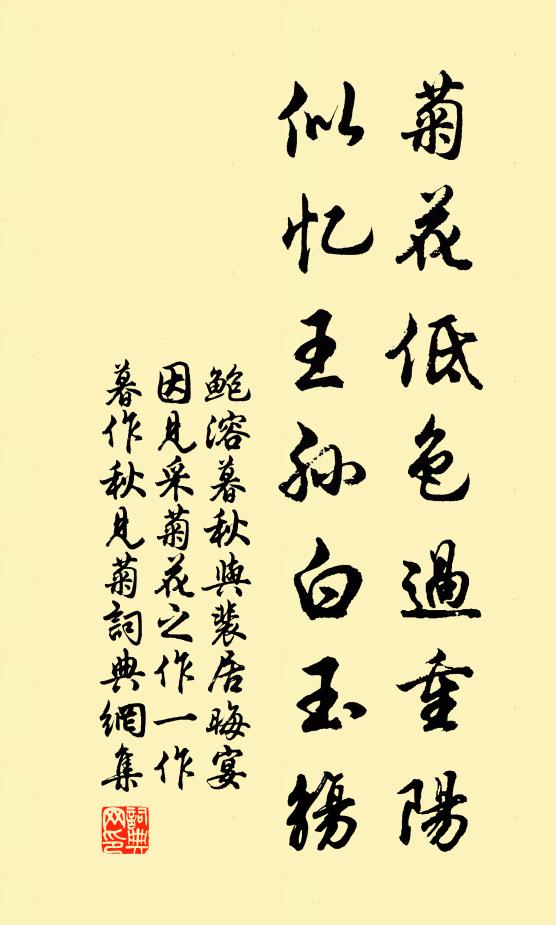 菊花低色過重陽
似忆王孙白玉觴
鮑溶暮秋與裴居晦宴
因見采菊花之作一作
暮作秋見菊詞典網集
詞典网印